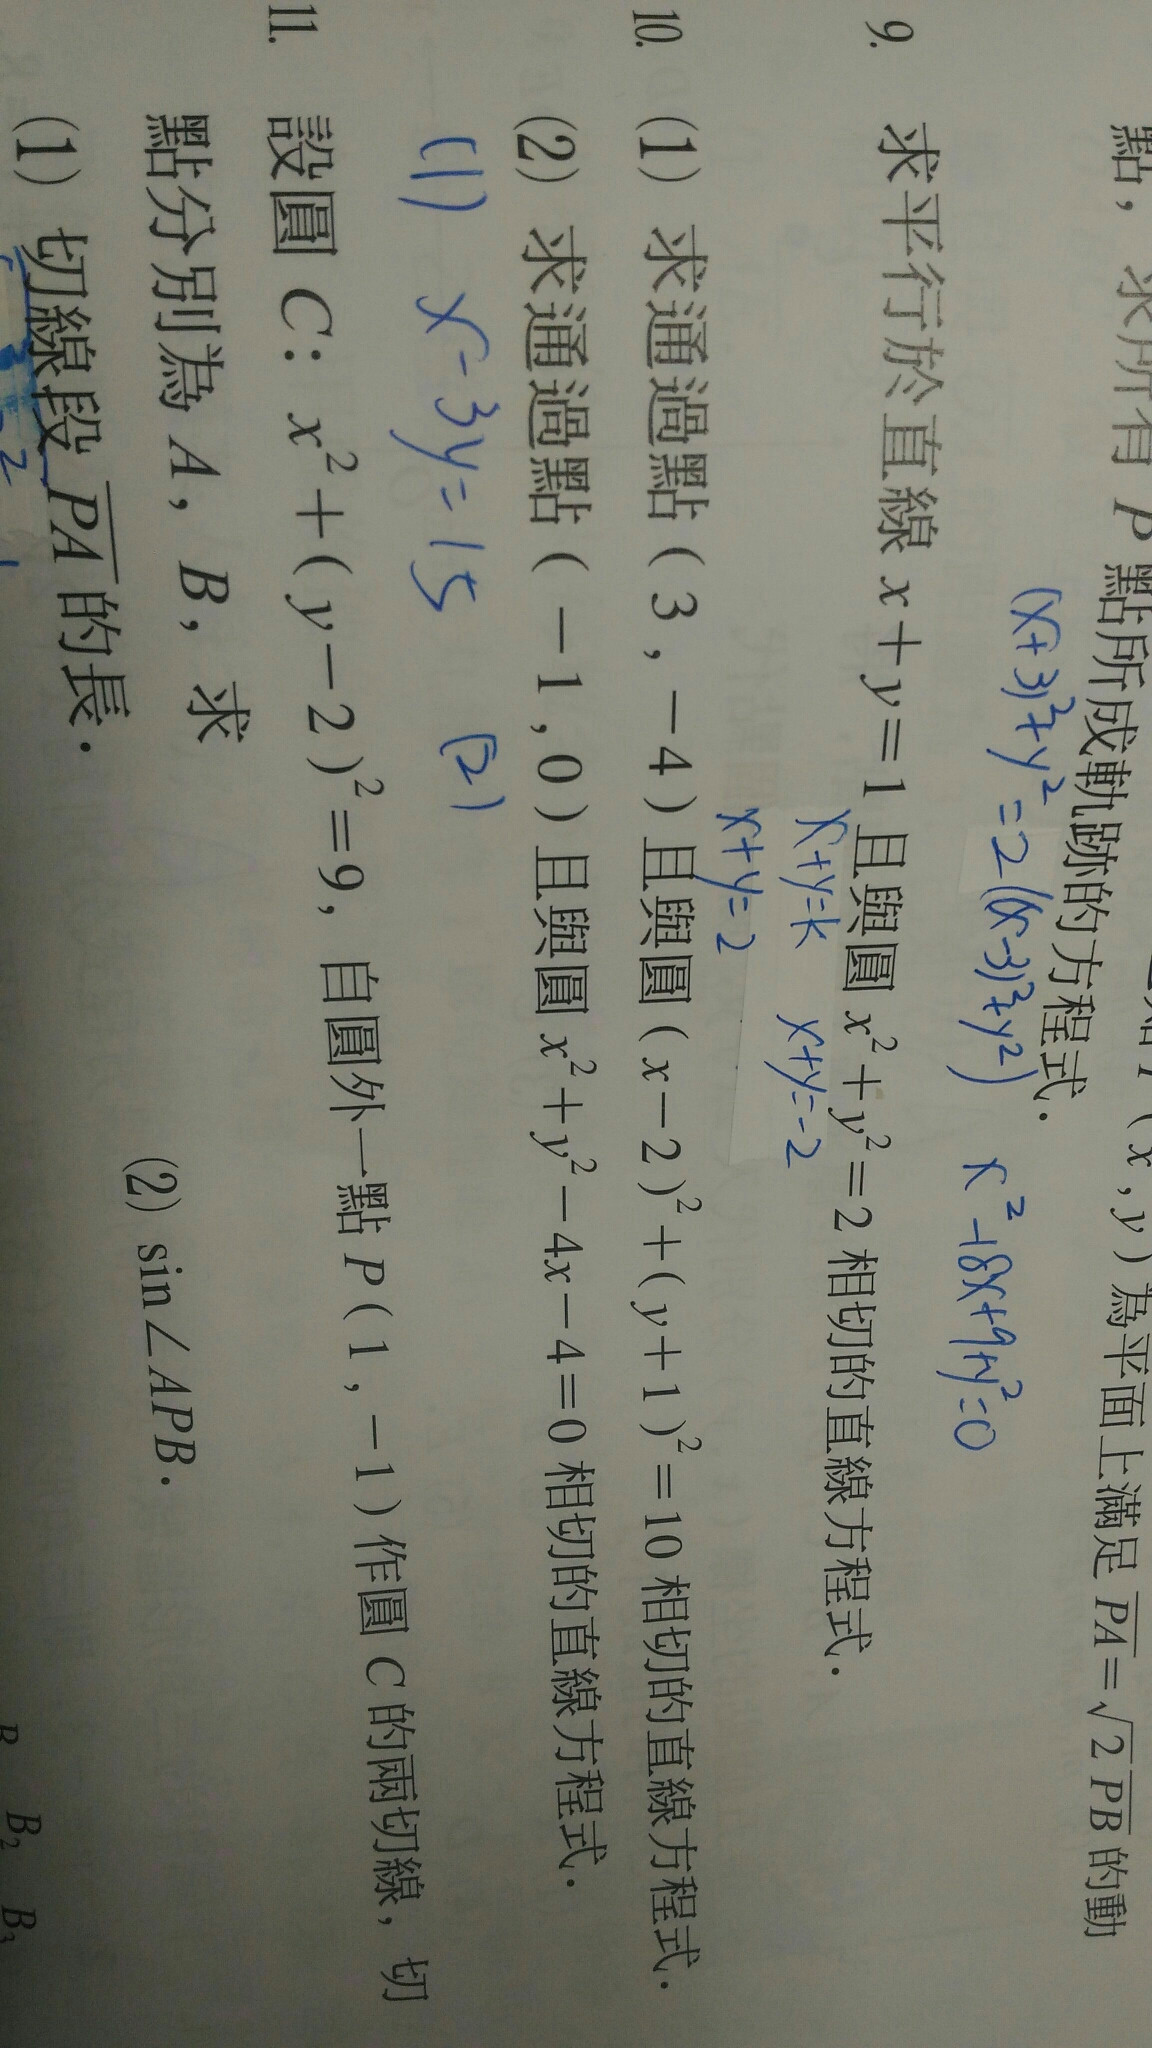 (x,y)為平面上滿足 PA=√2 PB 的動
點,求所有 P 點所成軌跡的方程式.
(x+3)²+y²=2((x-3)²+y²) x²-18x+9+y²=0
9. 求平行於直線 x+y=1 且與圓 x²+y²=2 相切的直線方程式.
x+y=k x+y=-2
x+y=2
10. (1) 求通過點(3,-4)且與圓(x-2)²+(y+1)²=10 相切的直線方程式.
(2) 求通過點(-1,0)且與圓 x²+y²-4x-4=0 相切的直線方程式.
(1) x-3y=15 (2)
11. 設圓 C: x²+(y-2)²=9,自圓外一點 P(1,-1)作圓 C 的兩切線,切
點分別為 A,B,求
(1) 切線段 PA 的長. (2) sin∠APB.
B₂ B₃